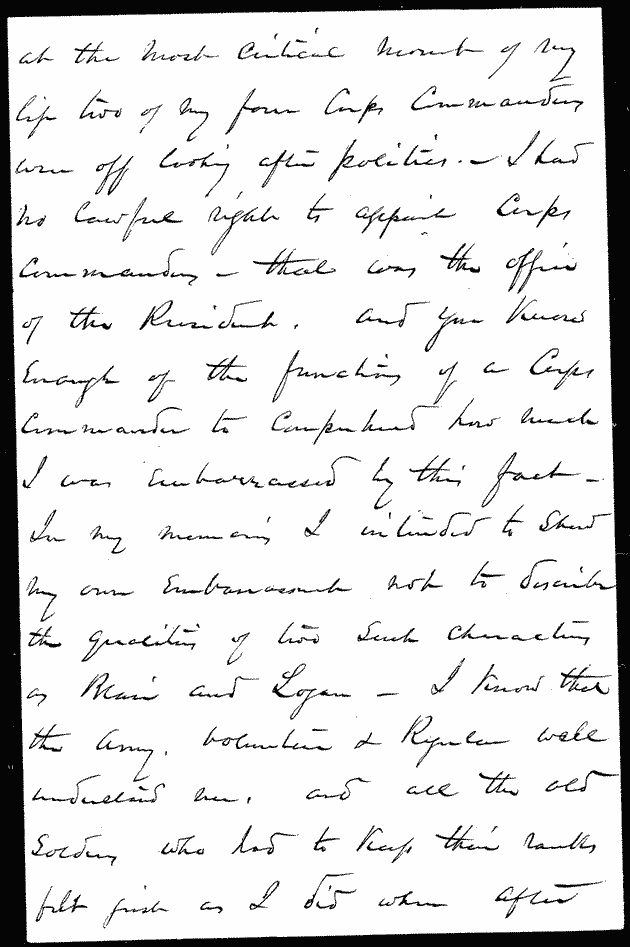 at the most critical moment of my
life two of my four Corps Commanders
were off looking after politics. — I had
no lawful right to appoint Corps
Commanders — that was the office
of the President, and you know
Enough of the functions of a Corps
Commander to Comprehend how much
I was Embarrassed by this fact —
In my memoirs I intended to Show
my own Embarrassment not to describe
the qualities of two Such characters
as Blair and Logan — I know that
the Army, Volunteer & Regular will
understand me, and all the old
Soldiers who had to Keep their ranks
felt just as I did when after